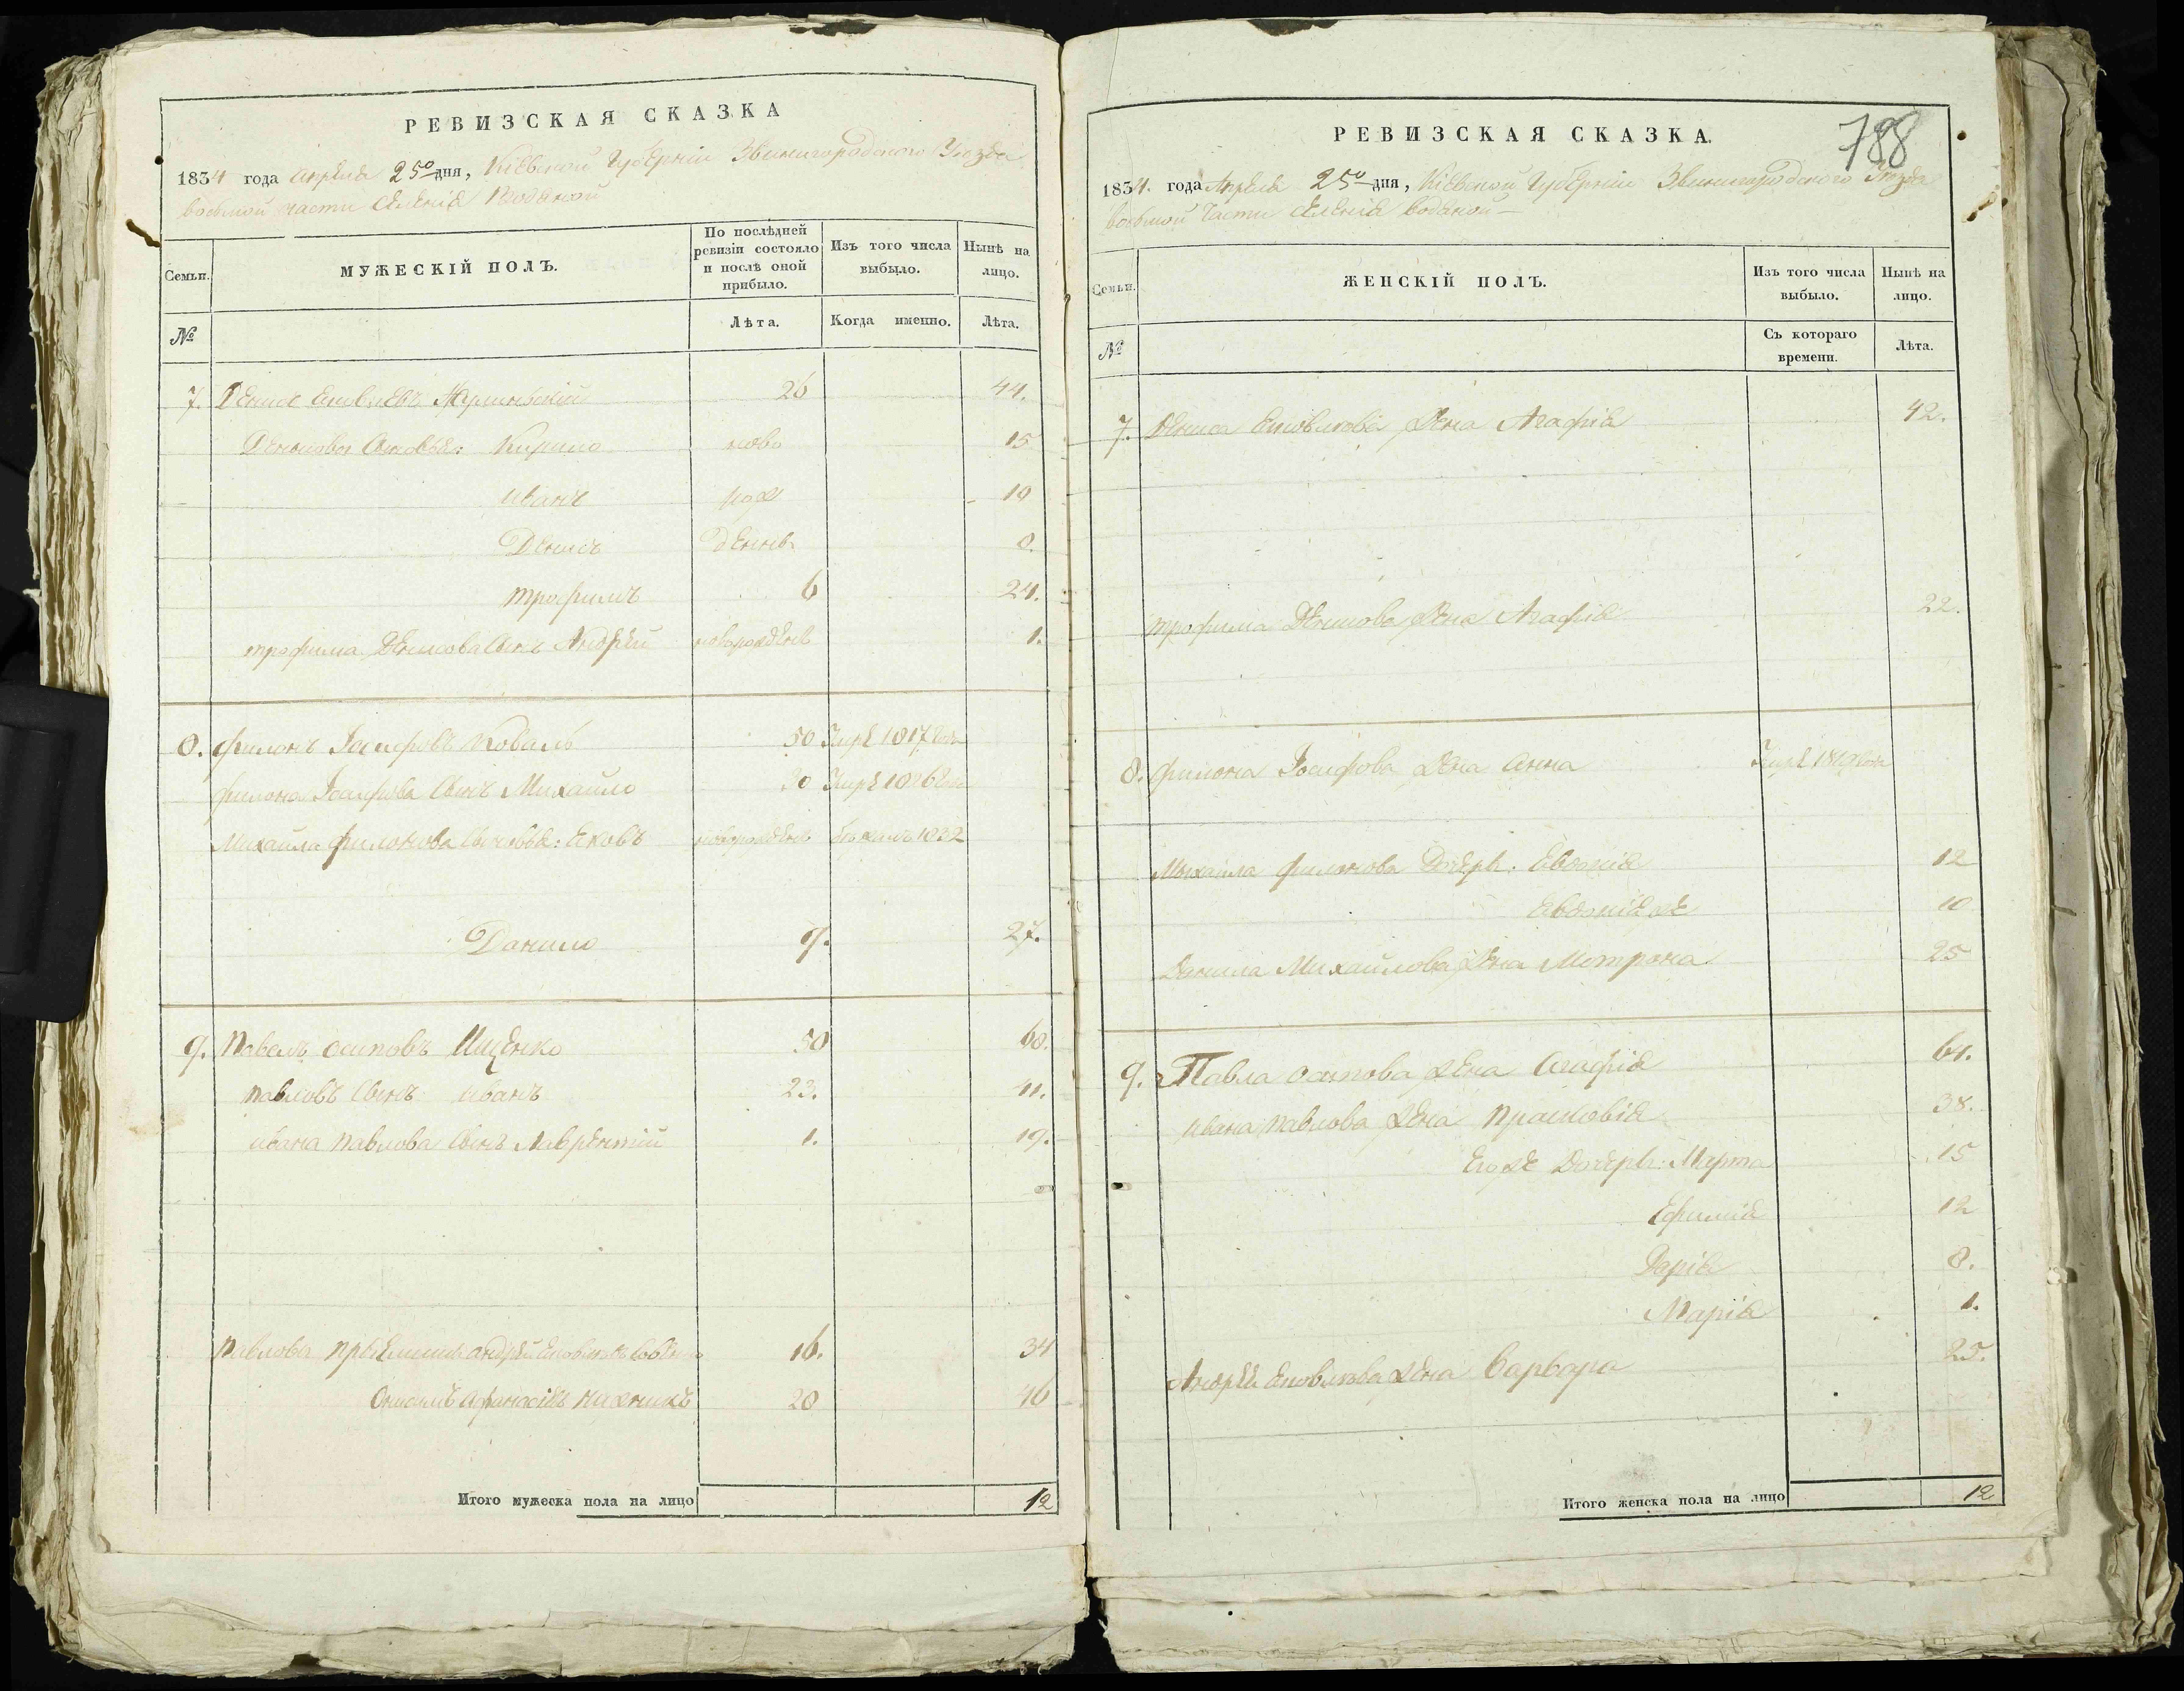 РЕВИЗСКАЯ СКАЗКА
1834 года Апреля 25го дня, Кіевской Губерніи Звенигородского Уезда
восьмой части селенія Водяной
Семьи.
МУЖЕСКІЙ ПОЛЪ.
По послѣдней ревизіи состояло и послѣ оной прибыло.
Изъ того числа выбыло.
Нынѣ на лицо.
№
Лѣта.
Когда именно.
Лѣта.
7. Денис 26 44.
Денисовы Сыновья: Кирило ново 15
Иванъ рож 10
Денисъ деннъ 8.
трофимъ 6 24.
трофима Денисова Сынъ Андрей новорожденъ 1.
8. филонъ Іосифовъ Коваль 50 Умре 1817 года
филона Іосифова Сынъ Михайло 30 Умре 1826 года
Михайла филонова Сыновья: Яковъ новорожденъ 1832
Данило 9. 27.
9. Павелъ осиповъ Ищенко 50 68.
павловъ Сынъ Иванъ 23. 41.
ивана павлова Сынъ Лаврентій 1. 19.
Павловы Андрей 16. 34
20 46
Итого мужеска пола на лицо 12
788
РЕВИЗСКАЯ СКАЗКА.
1834. года Апреля 25го дня, Кіевской Губерніи Звенигородского Уезда
восьмой Части селенія водяной
Семьи.
ЖЕНСКІЙ ПОЛЪ.
Изъ того числа выбыло.
Нынѣ на лицо.
№
Съ котораго времени.
Лѣта.
7. Дениса Яковлева жена Агафія 42.
трофима Денисова жена Агафія 22.
8. филона Іосифова жена Анна
Михайла филонова Дочери: Евдокія 12
Евдокія же 10
Данила Михайлова жена Мотрона 25
9. Павла осипова жена Агафія 64.
ивана павлова жена Прасковія 38.
Его же Дочери: Марта 15
Ефимія 12
Дарія 8.
Марія 1.
Андрея Яковлева жена Варвара 25.
Итого женска пола на лицо 12